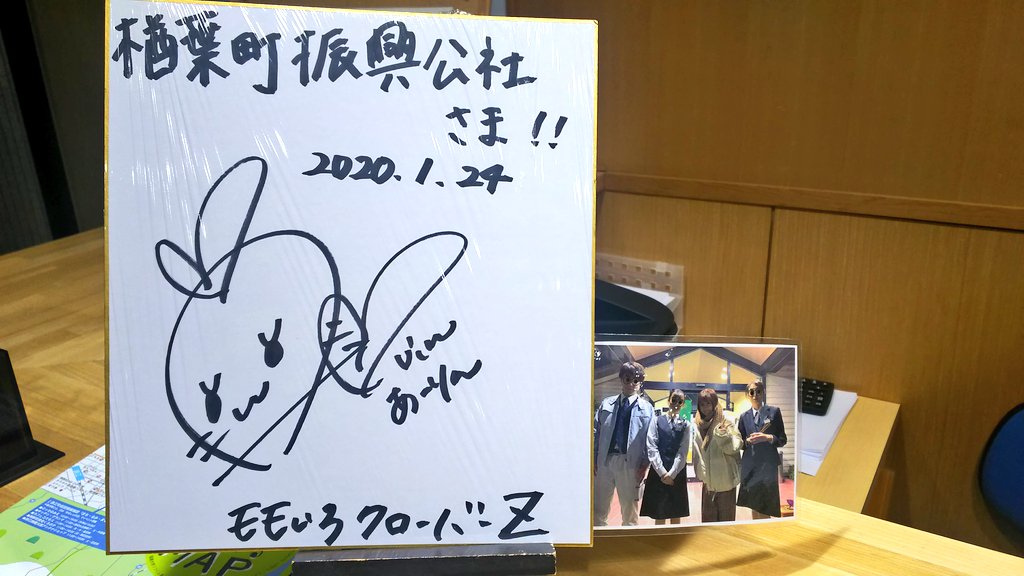 楢葉町振興公社
さま!!
2020.1.24
あーりん
ももいろクローバーZ
MAP